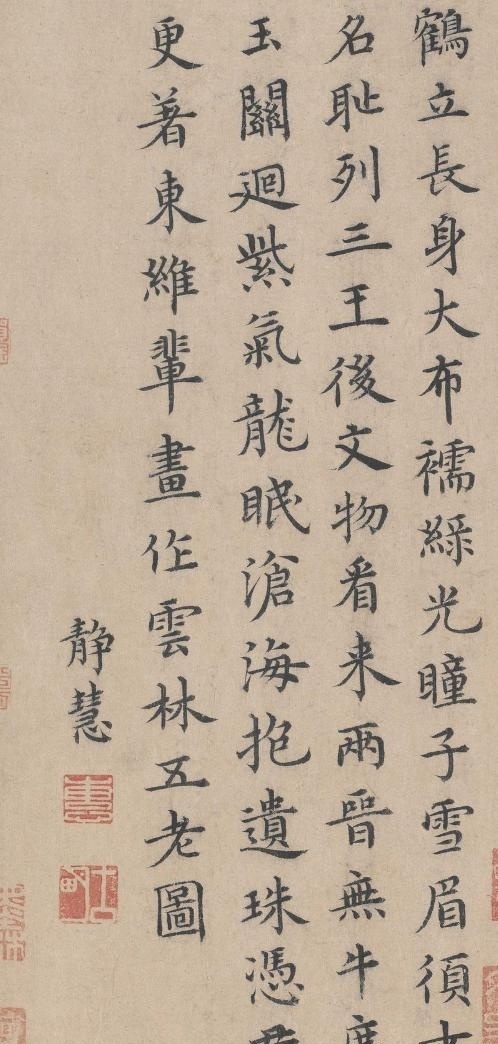 鶴立長身大布襦綠光瞳子雪眉須
名耻列三王後文物看来兩晉無牛度
玉關迴紫氣龍眠滄海抱遺珠憑君
更著東維輩畫作雲林五老圖
静慧